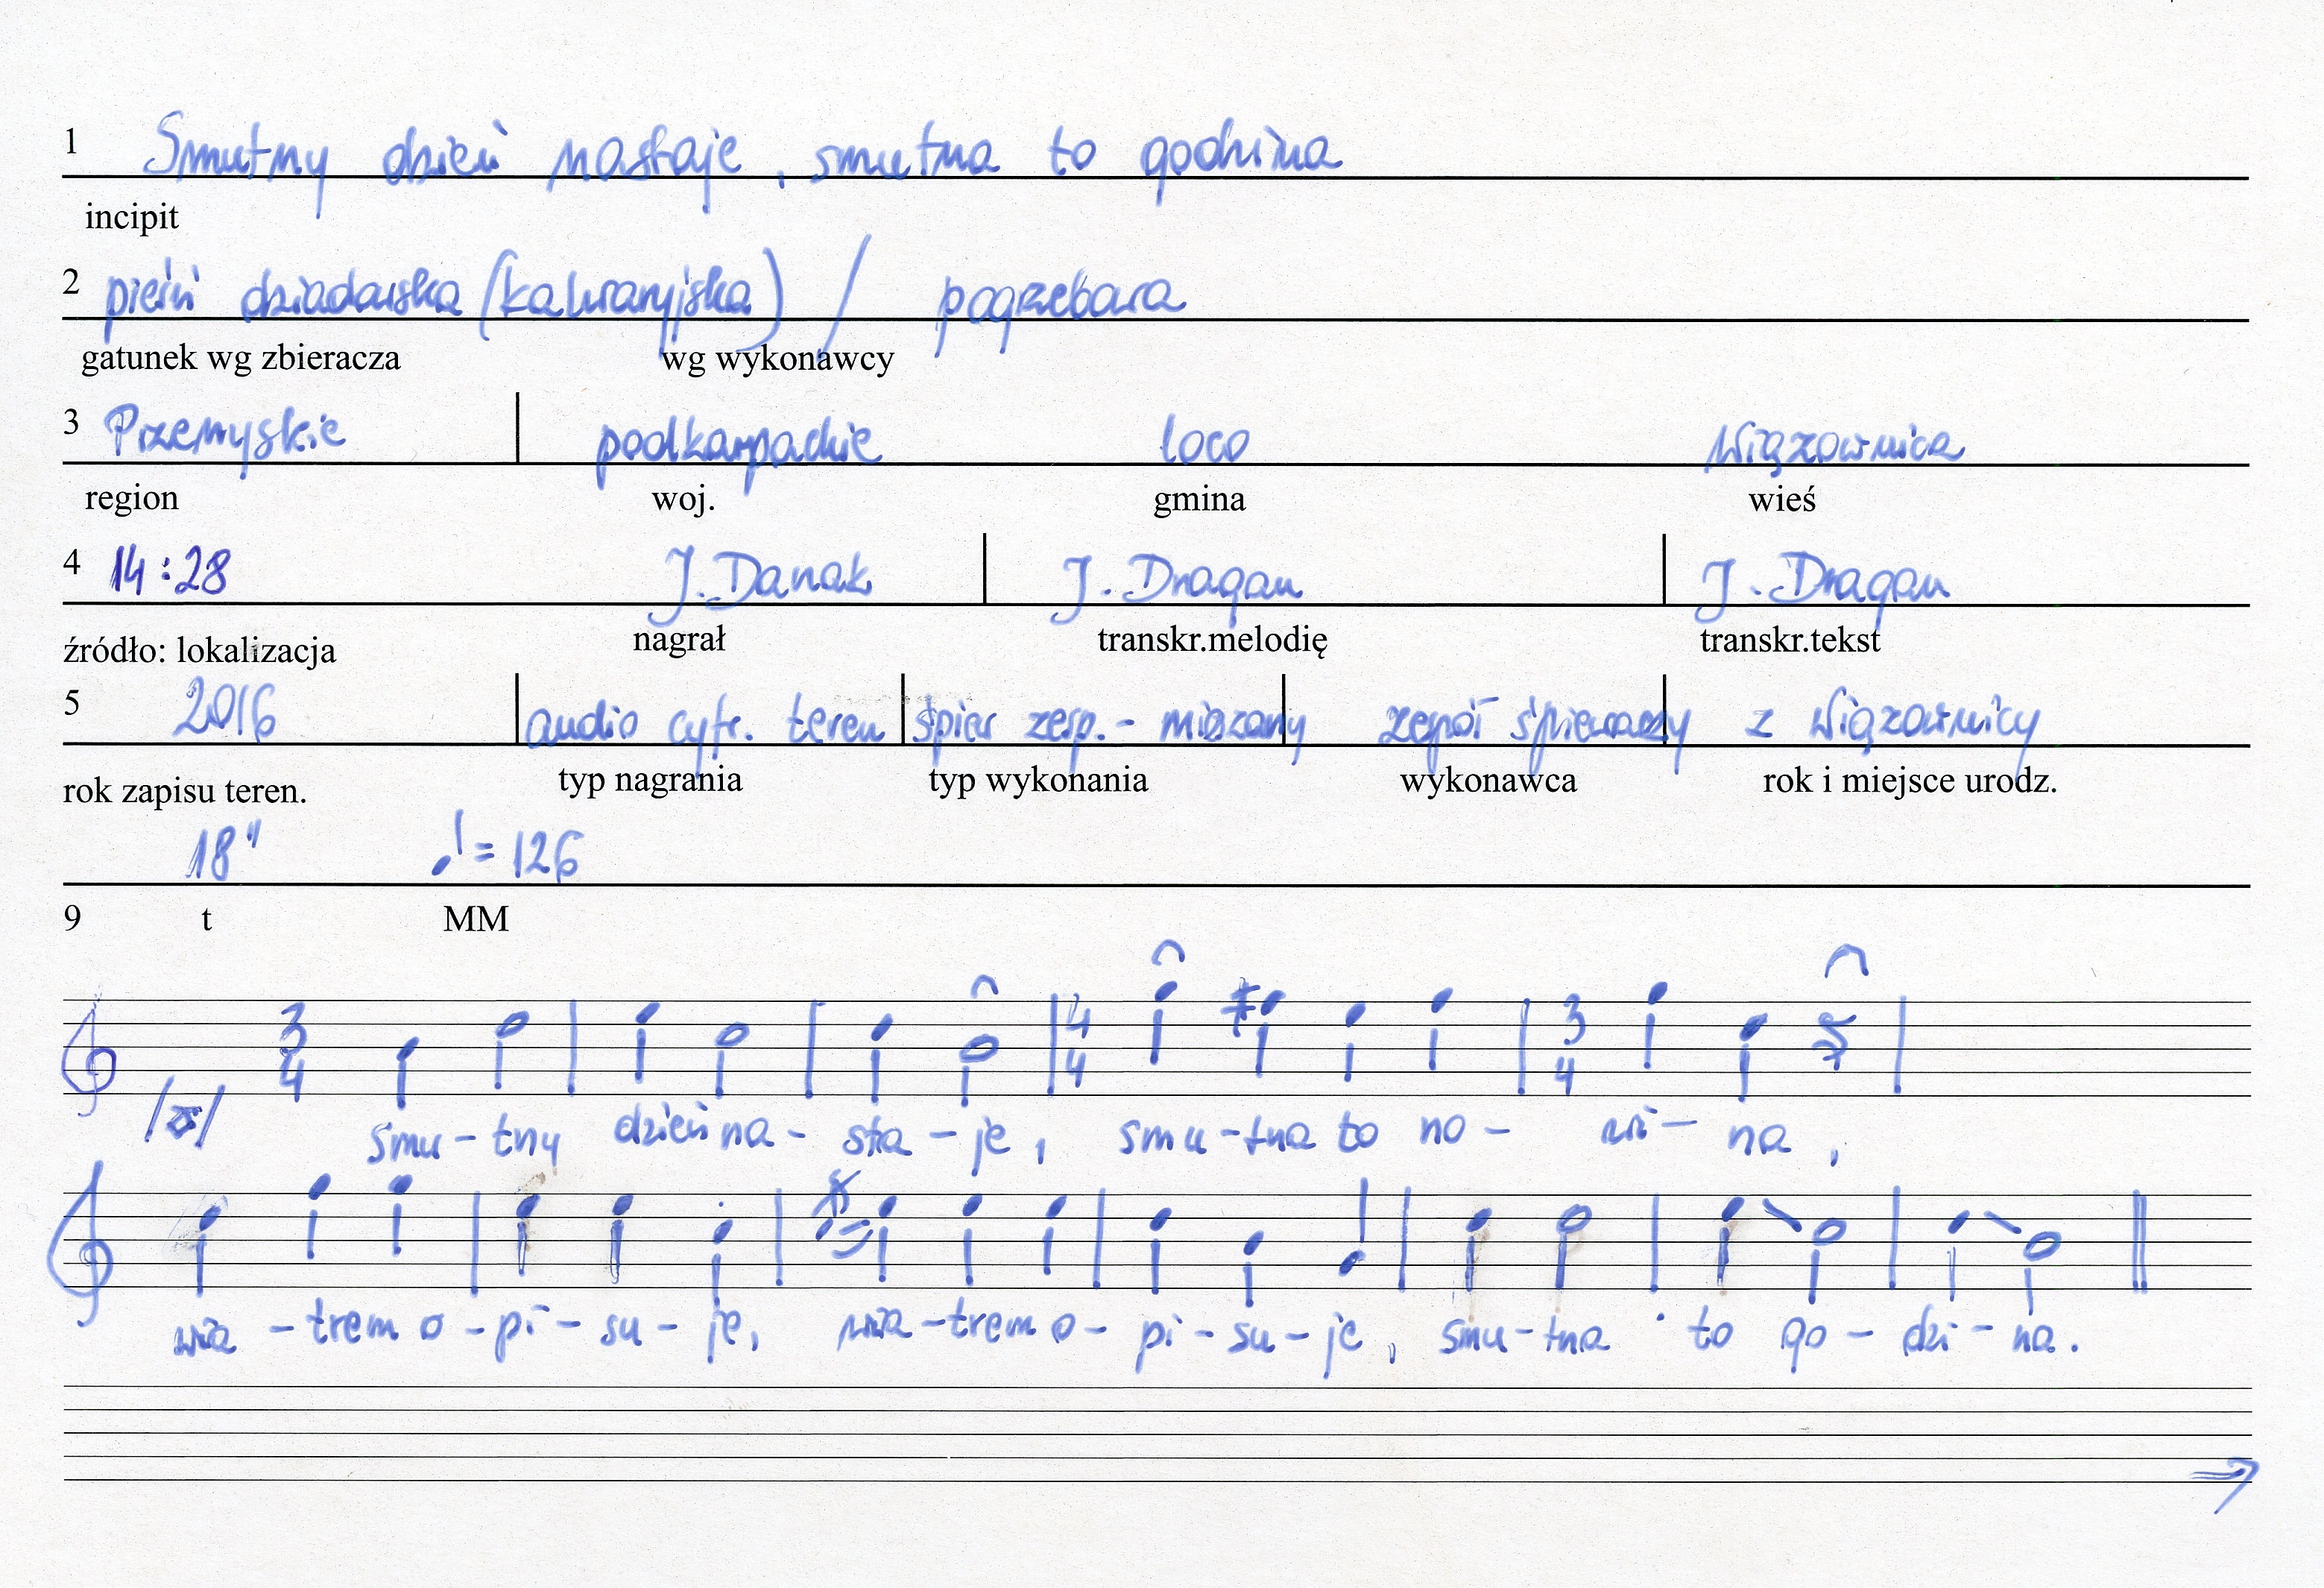 1 Smutny dzień nastaje, smutna to godzina
incipit
2 pieśń dziadowska (kalwaryjska) / pogrzebowa
gatunek wg zbieracza wg wykonawcy
3 Przemyskie podkarpackie loco Wiązownica
region woj. gmina wieś
4 14:28 J. Danak J. Dragan J. Dragan
źródło: lokalizacja nagrał transkr.melodię transkr.tekst
5 2016 audio cyfr. teren śpiew zesp. - mieszany zespół śpiewaczy z Wiązownicy
rok zapisu teren. typ nagrania typ wykonania wykonawca rok i miejsce urodz.
18" ♩ = 126
9 t MM
3 4 4 4 3 4
smu - tny dzień na - sta - je, smu - tna to no - wi - na,
wia - trem o - pi - su - je, wia - trem o - pi - su - je, smu - tna to go - dzi - na.